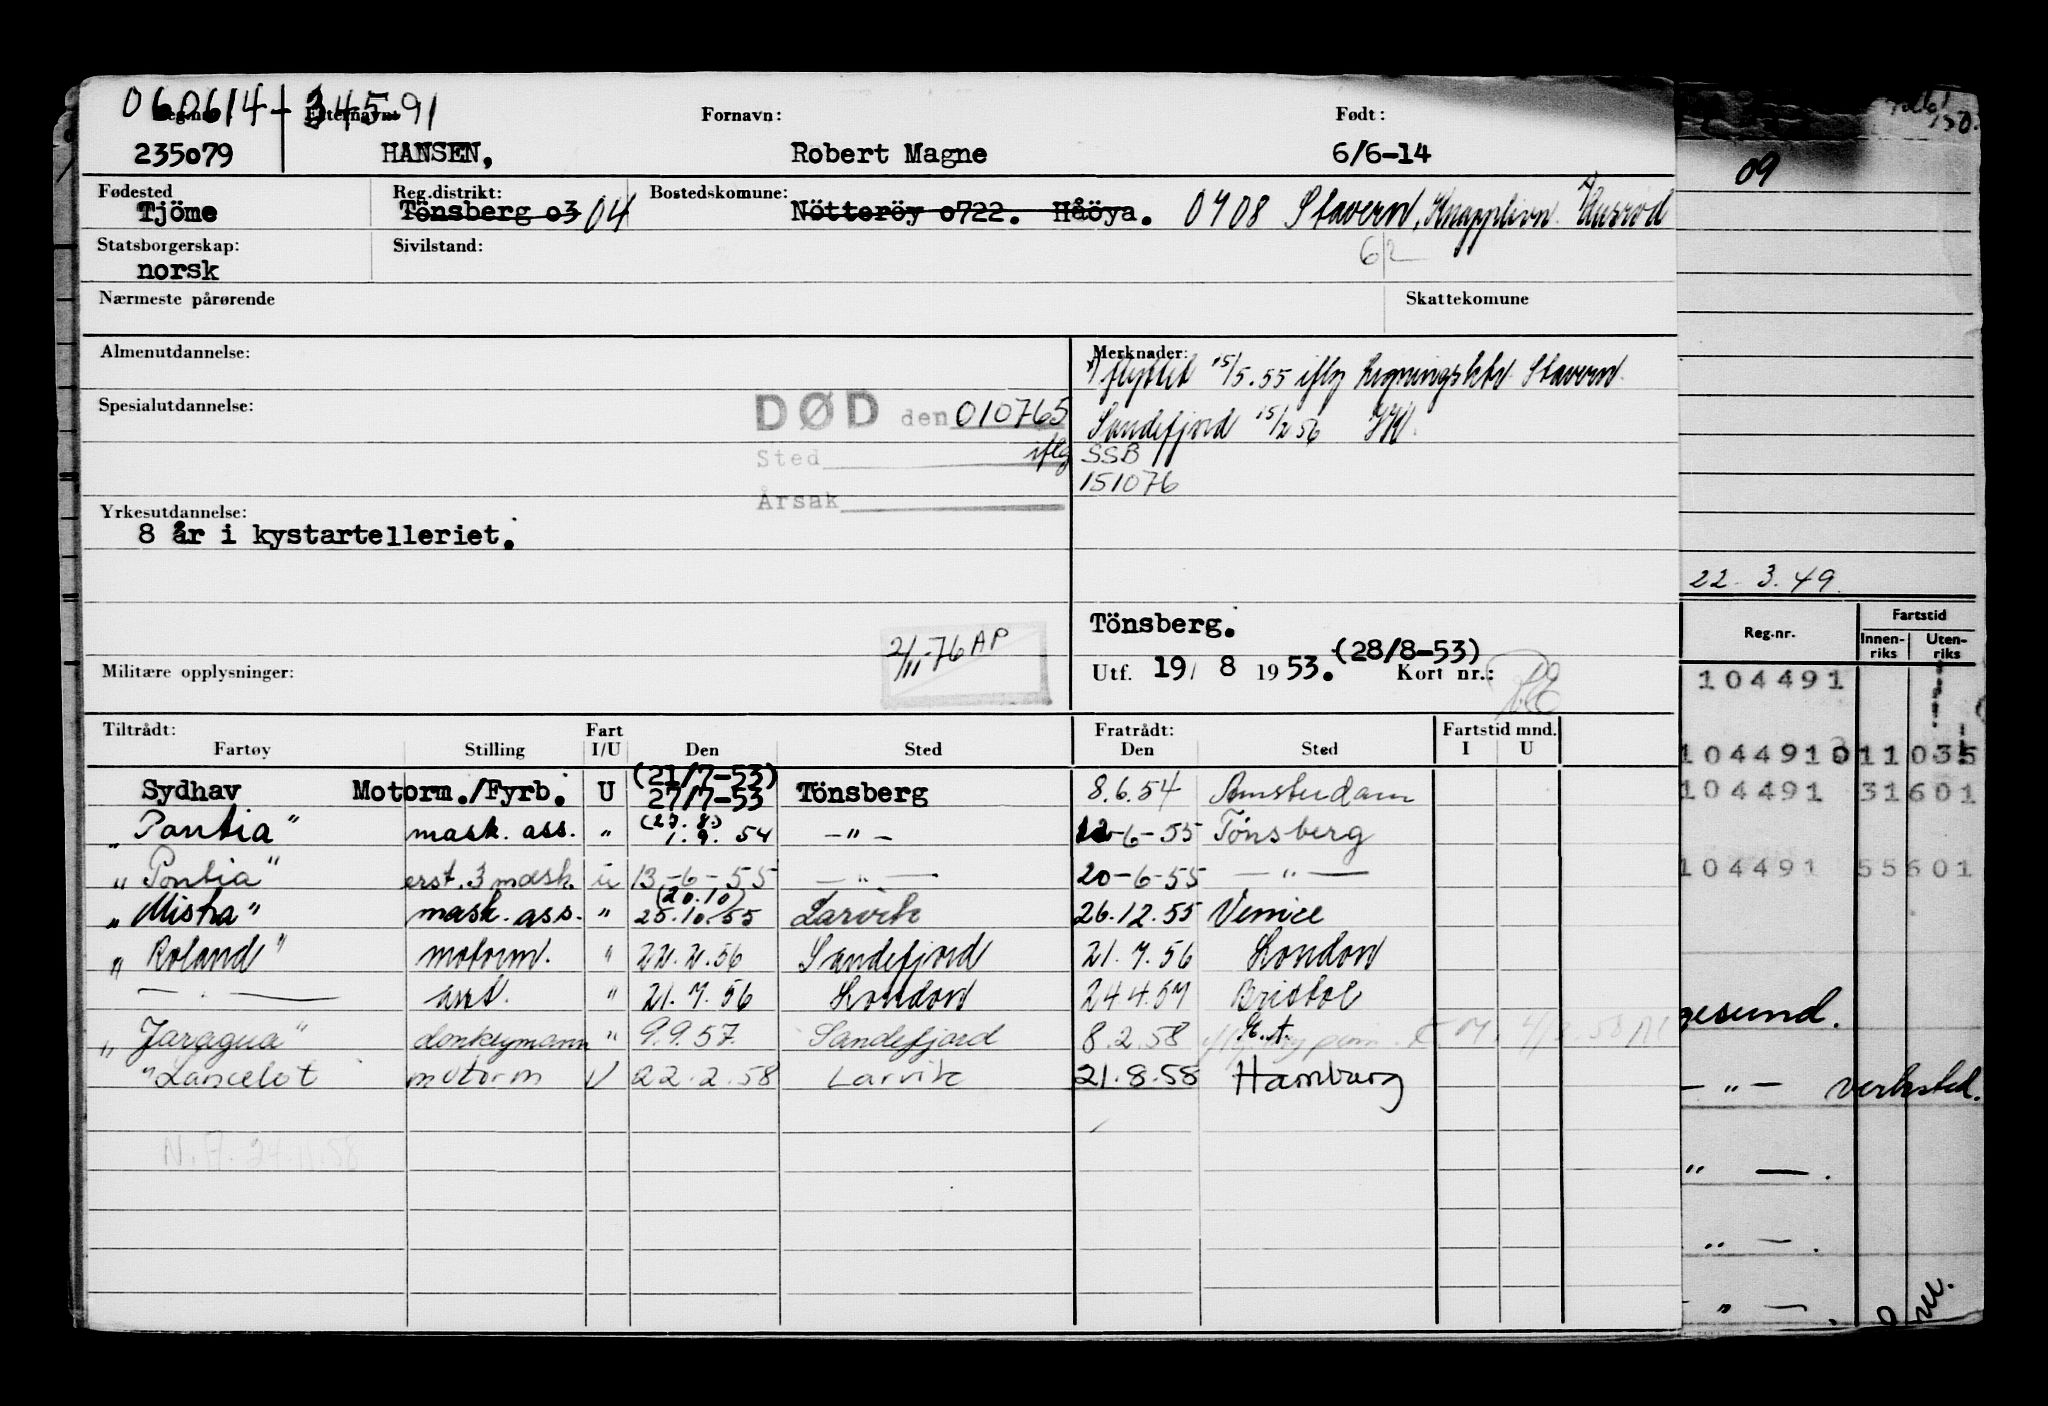 060614-34591
Reg.nr. Etternavn: Fornavn: Født:
235079 HANSEN, Robert Magne 6/6-14
Fødested Reg.distrikt: Bostedskomune:
Tjöme Tönsberg o3 04 Nötteröy o722. Håöya. 0708 Stavern,
Statsborgerskap: Sivilstand: 6/2
norsk
Nærmeste pårørende Skattekomune
Almenutdannelse: Merknader:
x) flyttet 15/5.55 iflg Ligningsktr Stavern
Spesialutdannelse: DØD den 010765
Sandefjord 15/2 56
Sted iflg SSB
Årsak 151076
Yrkesutdannelse:
8 år i kystartelleriet.
Tönsberg.
2/11-76 AP
(28/8-53)
Militære opplysninger: Utf. 19/ 8 1953. Kort nr.:
Tiltrådt: Fart Fratrådt: Fartstid mnd.
Fartøy Stilling I/U Den Sted Den Sted I U
(21/7-53)
Sydhav Motorm./Fyrb. U 27/7-53 Tönsberg 8.6.54 Amsterdam
(27.8.)
"Pontia" mask. ass. " 1.9.54 -"- 12-6-55 Tönsberg
"Pontia" erst. 3 mask. u 13-6-55 -"- 20-6-55 -"-
(20.10)
"Mistra" mask. ass. " 25.10.55 Larvik 26.12.55 Venice
"Roland" motorm. " 22.2.56 Sandefjord 21.7.56 London
-"- " 21.7.56 London 24.4.57 Bristol
"Jaragua" donkeymann " 9.9.57 Sandefjord 8.2.58
"Lancelot motorm U 22.2.58 Larvik 21.8.58 Hamburg
N.A. 24.11.58
09
22.3.49.
Reg.nr. Fartstid
Innen-riks Uten-riks
104491
104491 011035
104491 31601
104491 55601
gesund.
-"- verksted.
" -.
" -.
" -.